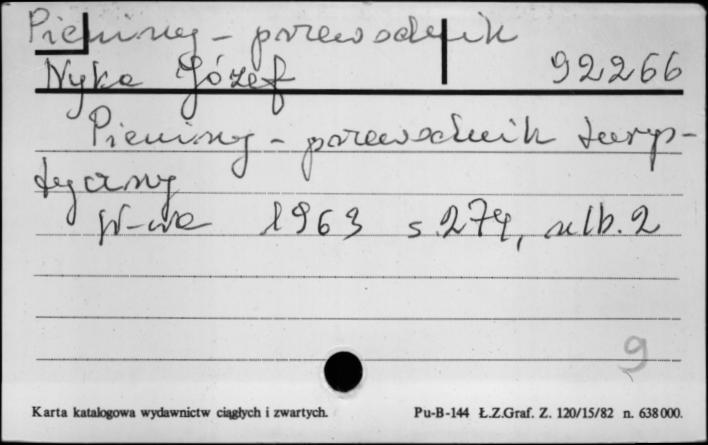 Pieniny - przewodnik
Nyka Józef 92266
Pieniny - przewodnik turys-
tyczny
W-wa 1963 s. 274, nlb. 2
9
Karta katalogowa wydawnictw ciągłych i zwartych. Pu-B-144 Ł.Z.Graf. Z. 120/15/82 n. 638000.